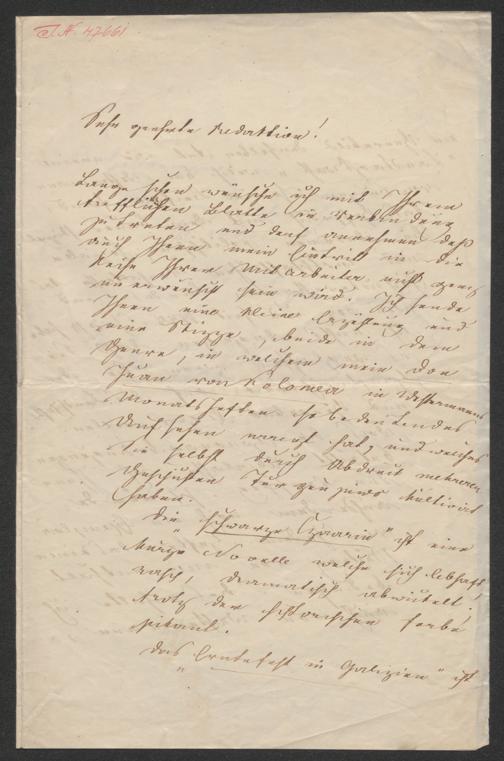 I.N. 47661
Sehr geehrte Redaktion!
Lange schon wünsche ich mit Ihrem
trefflichen Blatte in Verbindung
zu treten und darf annehmen daß
auch Ihnen mein Eintritt in die
Reihe Ihrer Mitarbeiter nicht ganz
unerwünscht sein wird. Ich sende
Ihnen eine kleine Erzählung und
eine Skizze, beide in dem
Genre, in welchem mein Don
Juan von Kolomea in Westermanns
Monatsheften so bedeutendes
Aufsehen erregt hat, und welches
Sie selbst durch Abdruck mehrerer
Geschichten Turgenjews kultivirt
haben.
Die „schwarze Czarin" ist eine
kurze Novelle welche sich lebhaft,
rasch, dramatisch abwickelt,
trotz der historischen Farbe
pikant.
Das „Erntefest in Galizien" ist